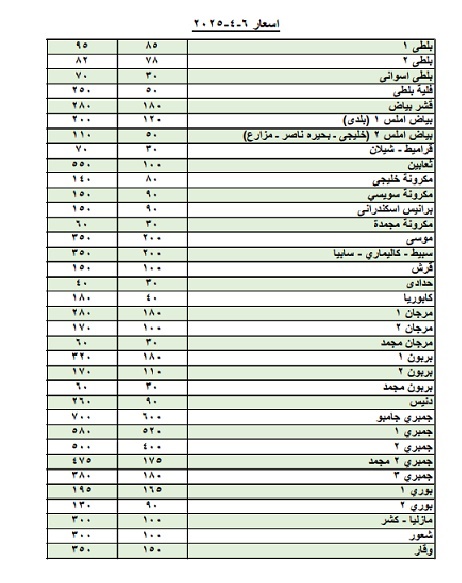 اسعار ٦-٤-٢٠٢٥
بلطى ١ ٨٥ ٩٥
بلطى ٢ ٧٨ ٨٢
بلطى اسوانى ٣٠ ٧٠
فلية بلطي ٥٠ ٢٥٠
قشر بياض ١٨٠ ٢٨٠
بياض املس ١ (بلدى) ١٢٠ ٢٠٠
بياض املس ٢ (خليجى - بحيره ناصر - مزارع) ٥٠ ١١٠
قراميط - شيلان ٣٠ ٧٠
ثعابين ١٠٠ ٥٥٠
مكرونة خليجي ٨٠ ١٤٠
مكرونة سويسي ٩٠ ١٥٠
برانيس اسكندرانى ٩٠ ١٥٠
مكرونة مجمدة ٣٠ ٦٠
موسى ٢٠٠ ٣٥٠
سبيط - كاليماري - سابيا ٢٠٠ ٣٥٠
قرش ١٠٠ ١٥٠
حدادى ٣٠ ٤٠
كابوريا ٤٠ ١٨٠
مرجان ١ ١٨٠ ٢٨٠
مرجان ٢ ١٠٠ ١٧٠
مرجان مجمد ٣٠ ٦٠
بربون ١ ١٨٠ ٣٢٠
بربون ٢ ١١٠ ١٧٠
بربون مجمد ٣٠ ٦٠
دنيس ٩٠ ٢٦٠
جمبري جامبو ٦٠٠ ٧٠٠
جمبري ١ ٥٢٠ ٥٨٠
جمبري ٢ ٤٠٠ ٥٠٠
جمبري ٢ مجمد ١٧٥ ٤٧٥
جمبري ٣ ١٨٠ ٣٨٠
بوري ١ ١٦٥ ١٩٥
بوري ٢ ٩٠ ١٣٠
مازليا - كشر ١٠٠ ٣٠٠
شعور ١٠٠ ٣٠٠
وقار ١٥٠ ٣٥٠